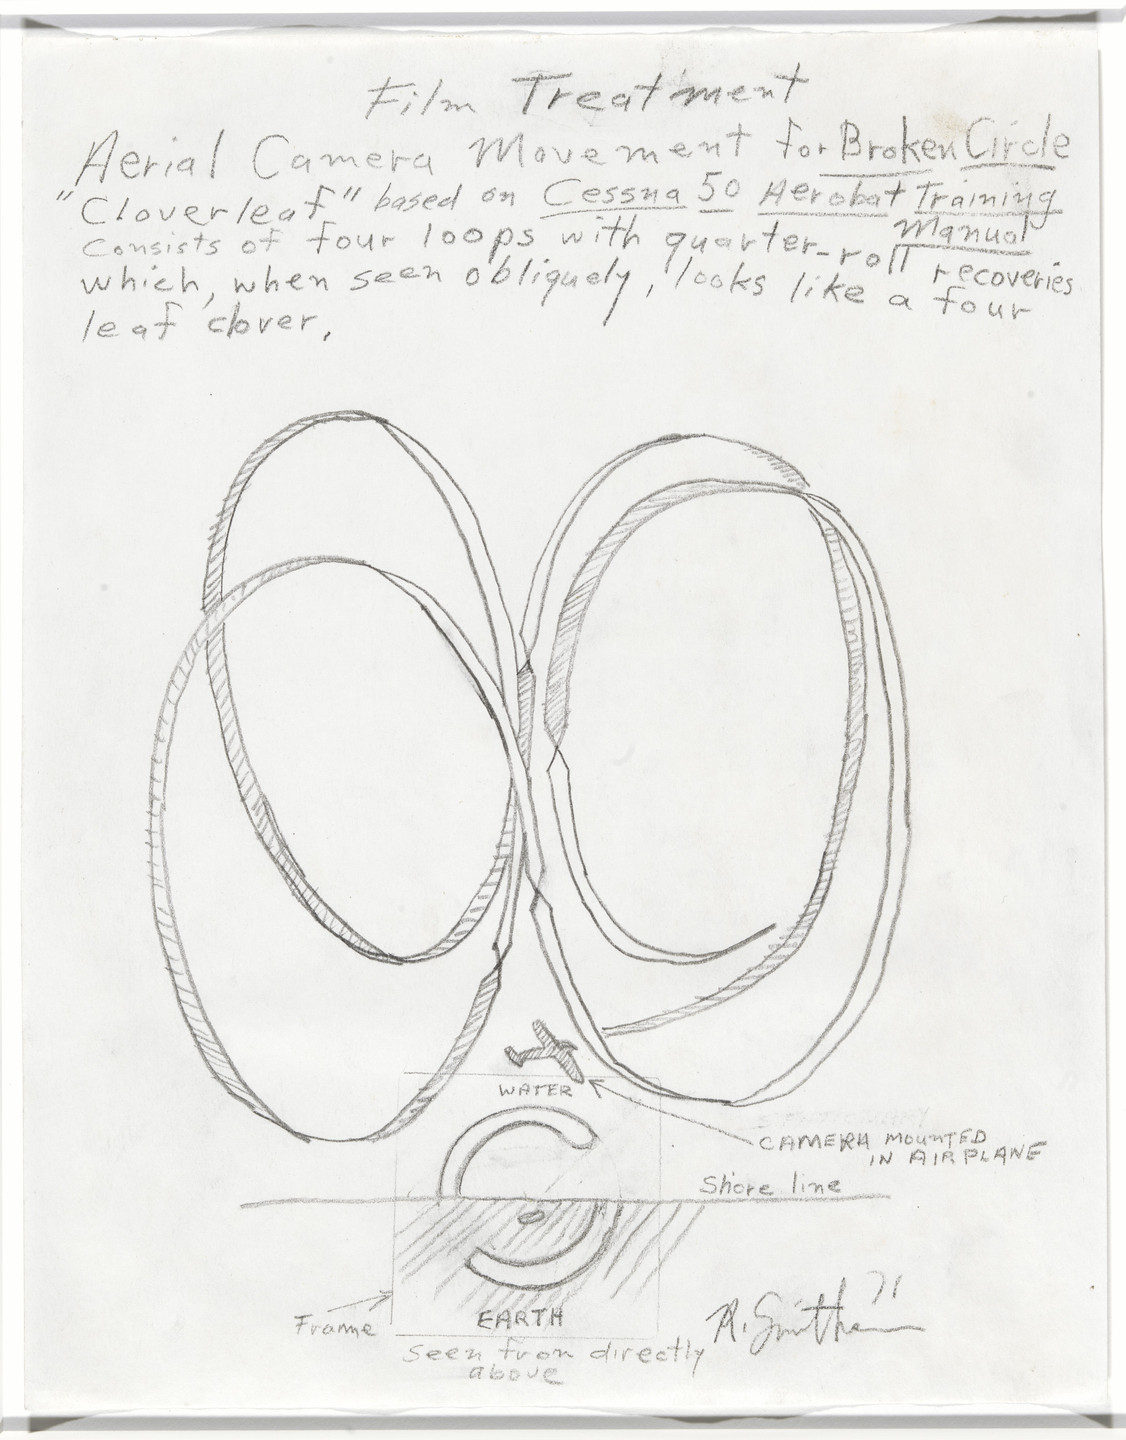 Film Treatment
Aerial Camera Movement for Broken Circle
"Cloverleaf" based on Cessna 50 Aerobat Training
Manual
Consists of four loops with quarter-roll recoveries
which, when seen obliquely, looks like a four
leaf clover.
WATER
CAMERA MOUNTED
IN AIRPLANE
Shore line
EARTH
Frame
Seen from directly
above
R. Smithson 71